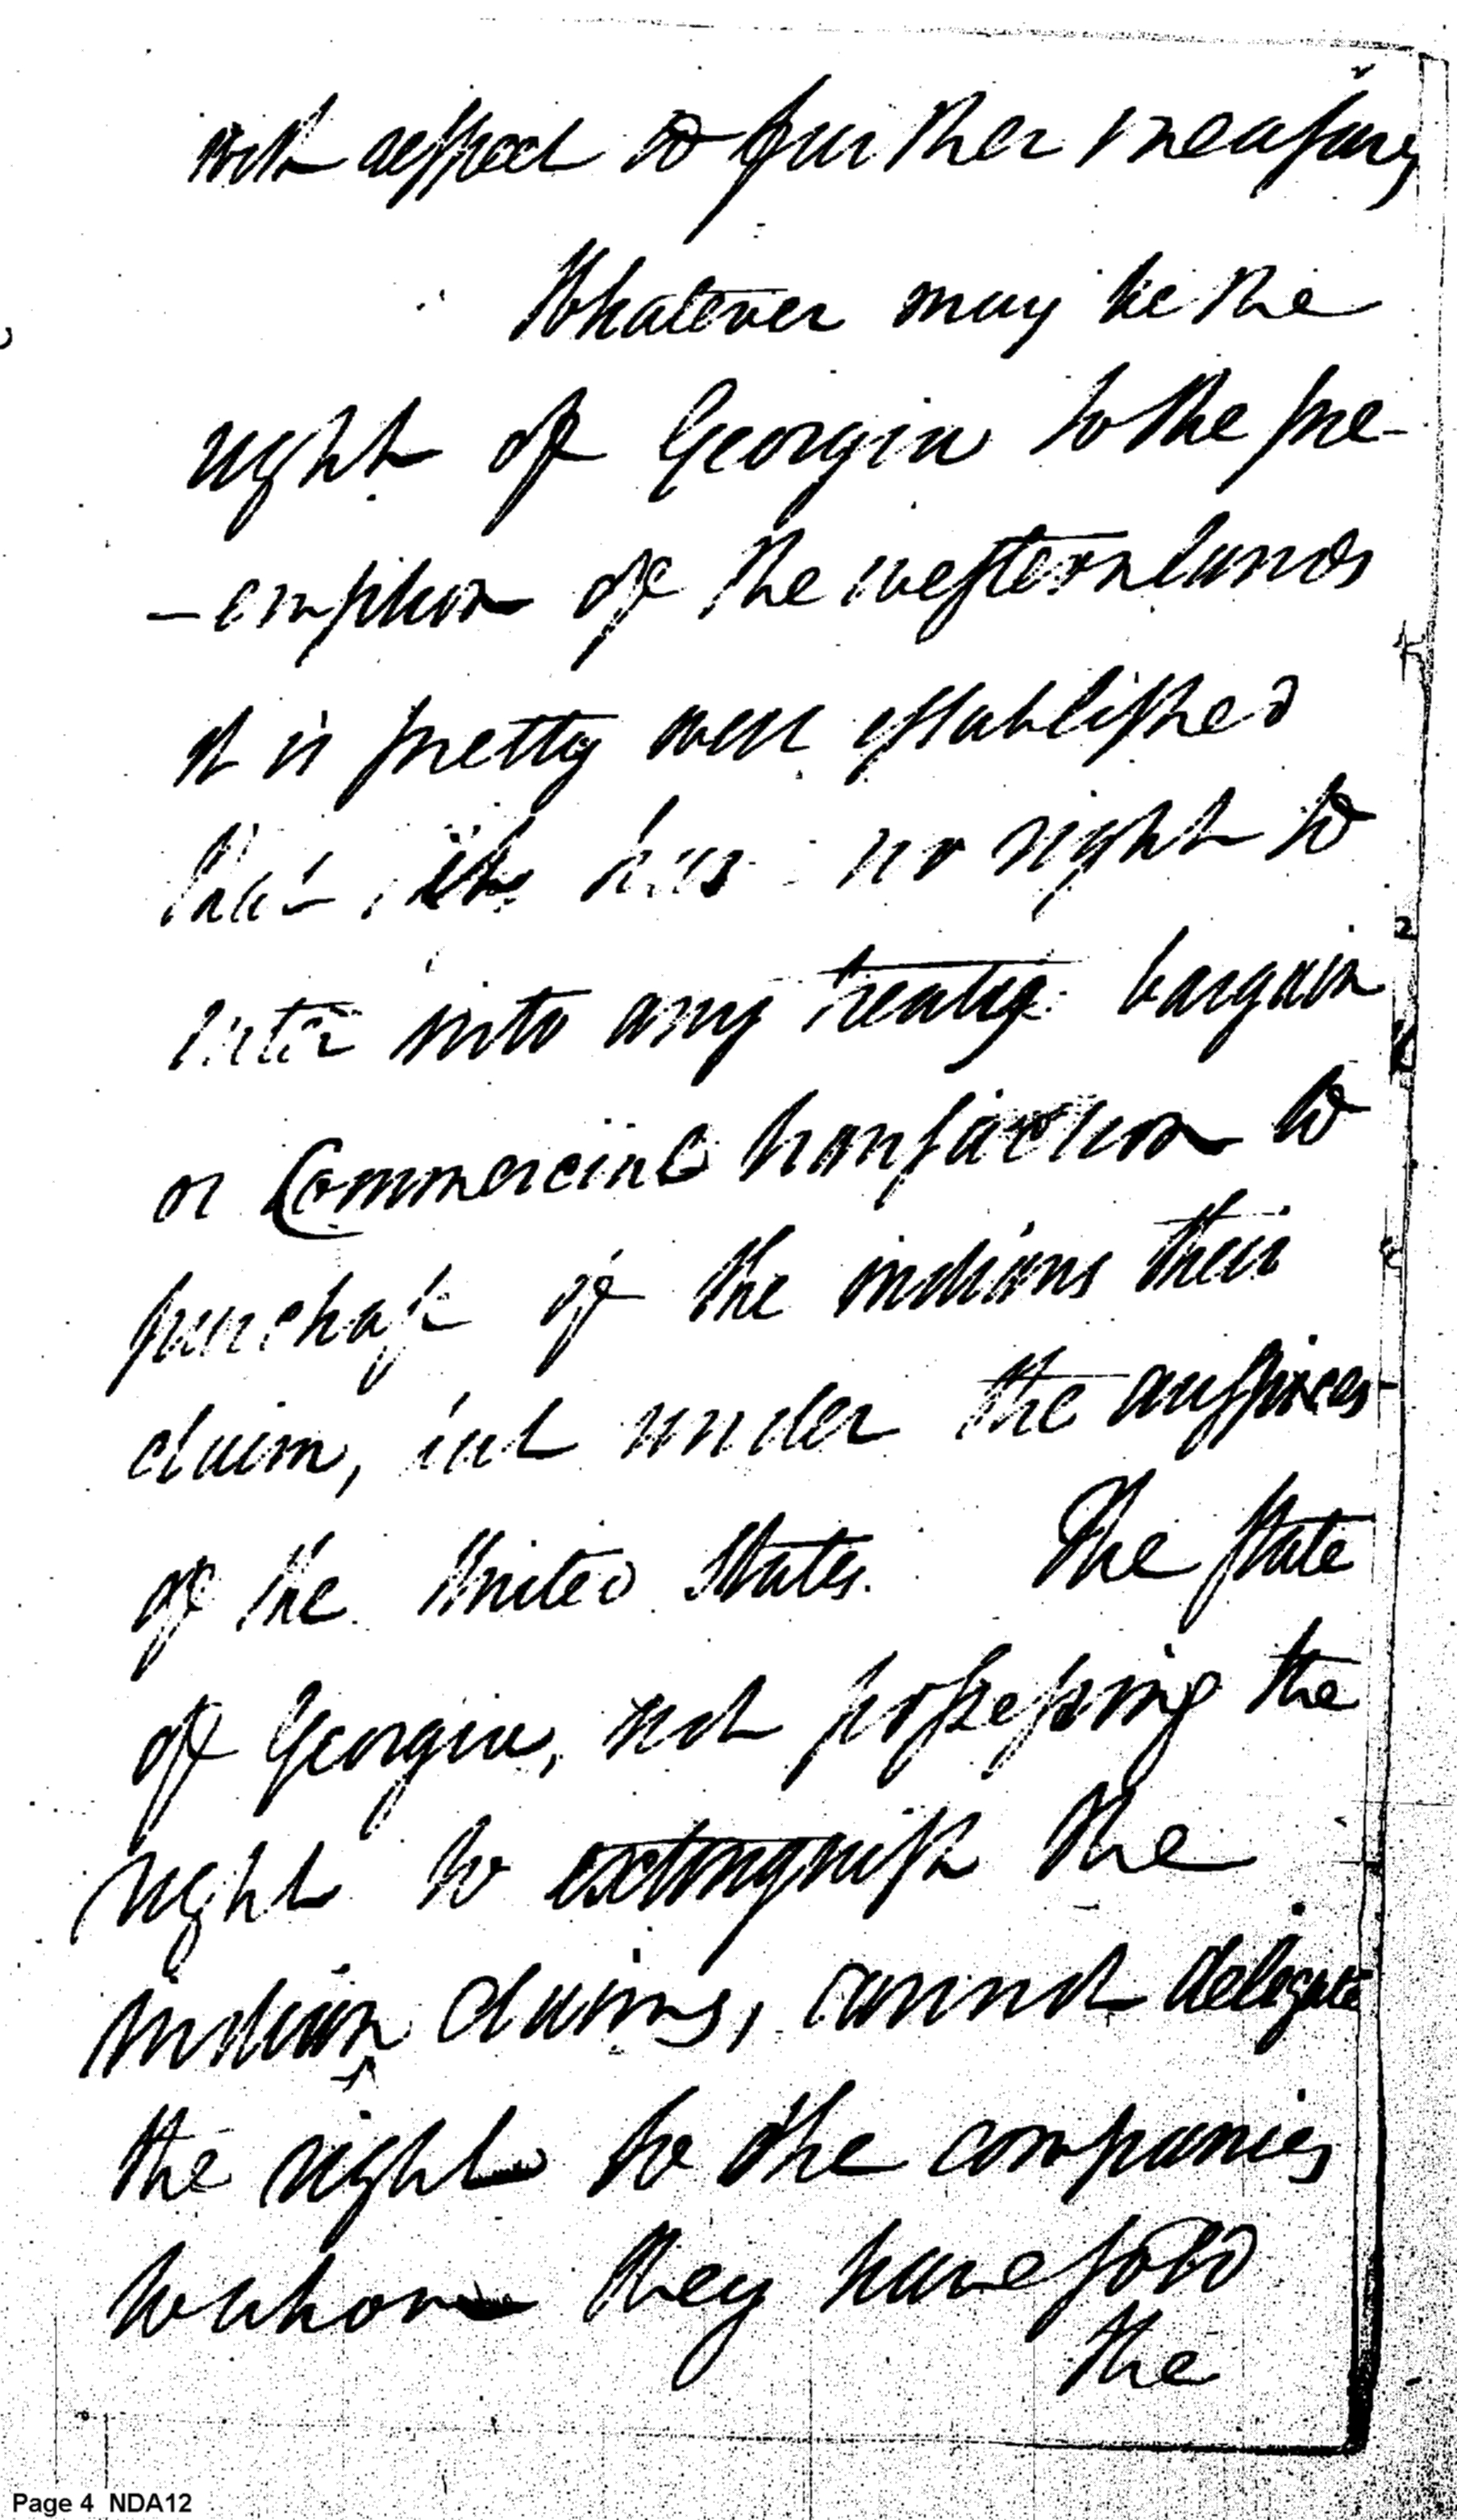 with respect to further measures
Whatever may be the
right of Georgia to the pre-
-emption of the western lands
it is pretty well established
that it has no right to
enter into any treaty bargain
or Commercial transaction to
purchase of the indians their
claim, but under the auspices
of the United States. The state
of Georgia, not possessing the
right to extinguish the
indian claims, cannot delegate
the right to the companies
to whom they have sold
the
Page 4 NDA12